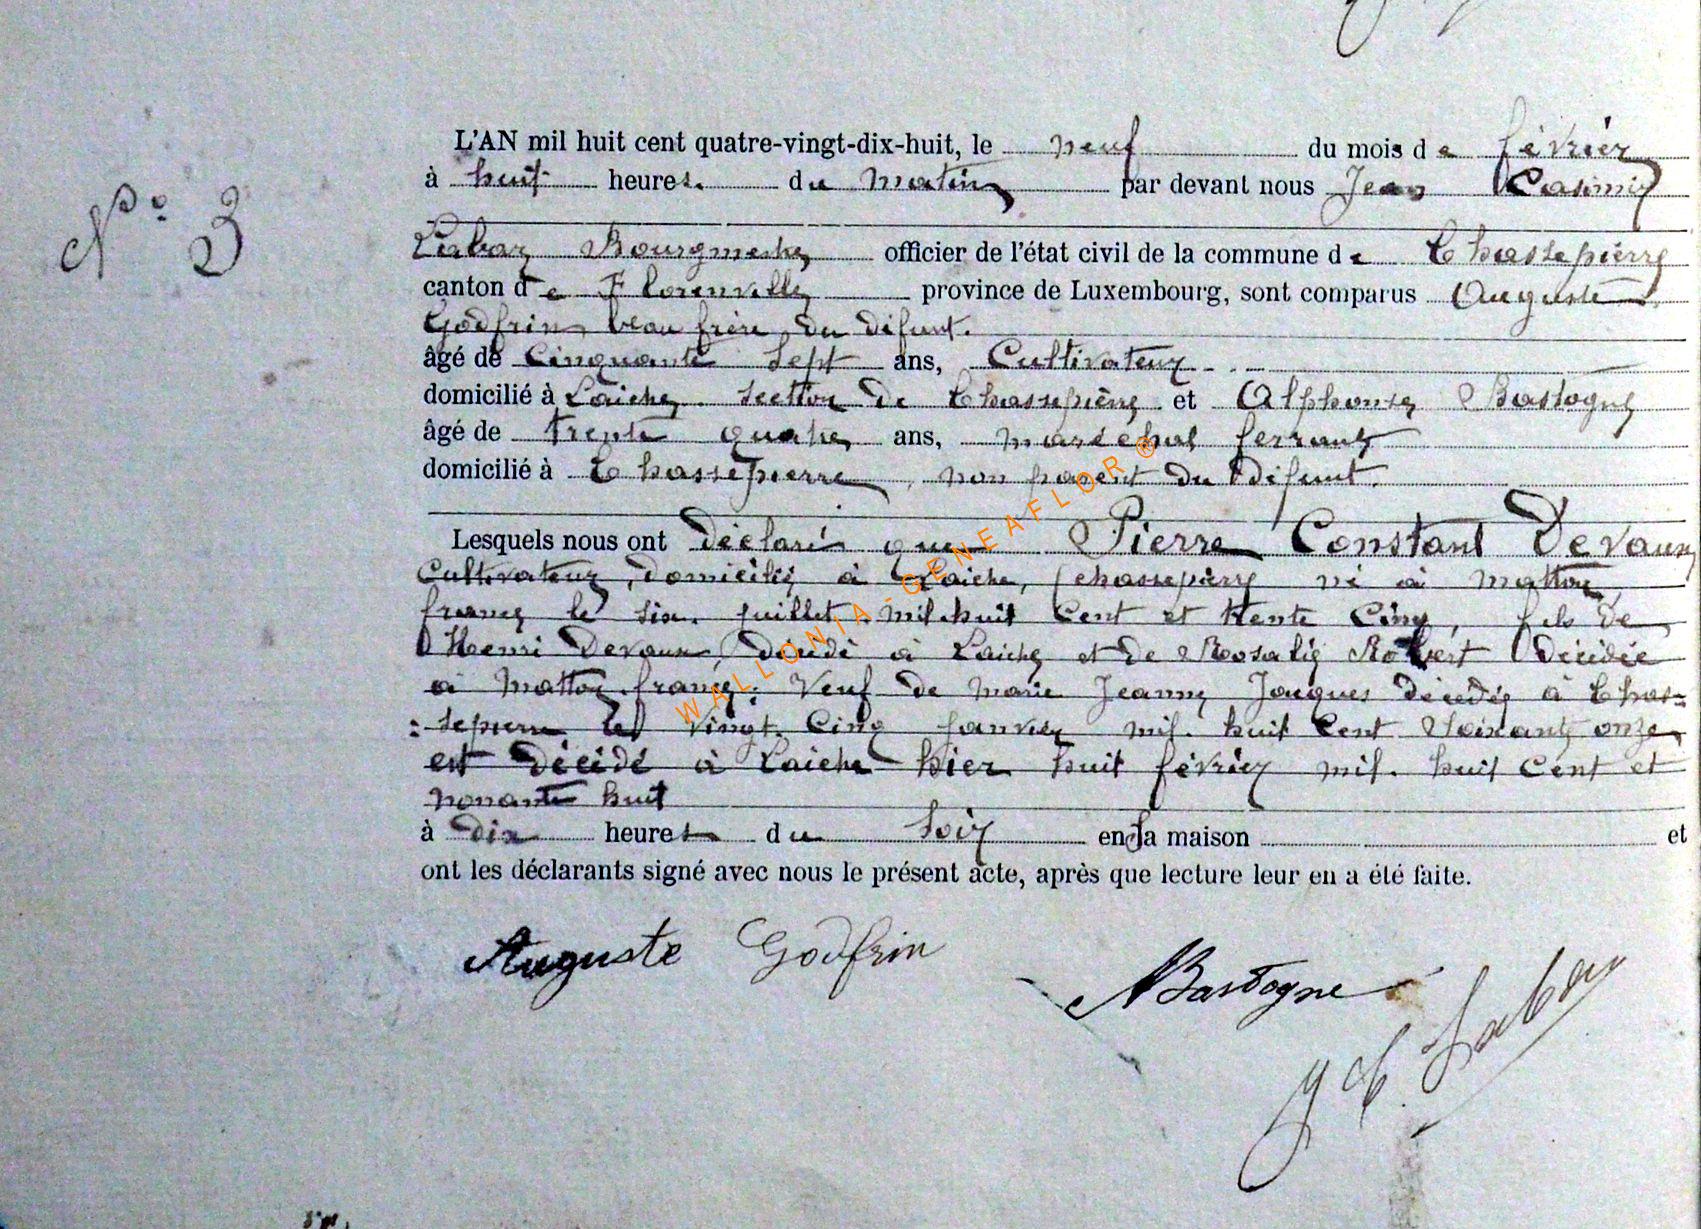 L'AN mil huit cent quatre-vingt-dix-huit, le neuf du mois de février
N° 3
à huit heures du matin par devant nous Jean Casimir
Labar Bourgmestre officier de l'état civil de la commune de Chassepierre
canton de Florenville province de Luxembourg, sont comparus Auguste
Godfrin beau frère du défunt.
âgé de cinquante sept ans, Cultivateur
domicilié à Laiche, section de Chassepierre et Alphonse Bastogne
âgé de trente quatre ans, maréchal ferrant
domicilié à Chassepierre, non parent du défunt.
Lesquels nous ont déclaré que Pierre Constant Devaux
Cultivateur, domicilié à Laiche, (chassepierre né à Matton,
france le six juillet mil huit cent et trente cinq, fils de
Henri Devaux, décédé à Laiche et de Rosalie Robert décédée
à Matton france; Veuf de Marie Jeanne Jacques décédée à Chas-
sepierre le vingt cinq janvier mil huit cent soixante onze,
est décédé à Laiche hier huit février mil huit cent et
nonante huit
à dix heures du soir en sa maison et
ont les déclarants signé avec nous le présent acte, après que lecture leur en a été faite.
Auguste Godfrin
ABastogne
J C. Labar
WALLONIA-GENEAFLOR ®